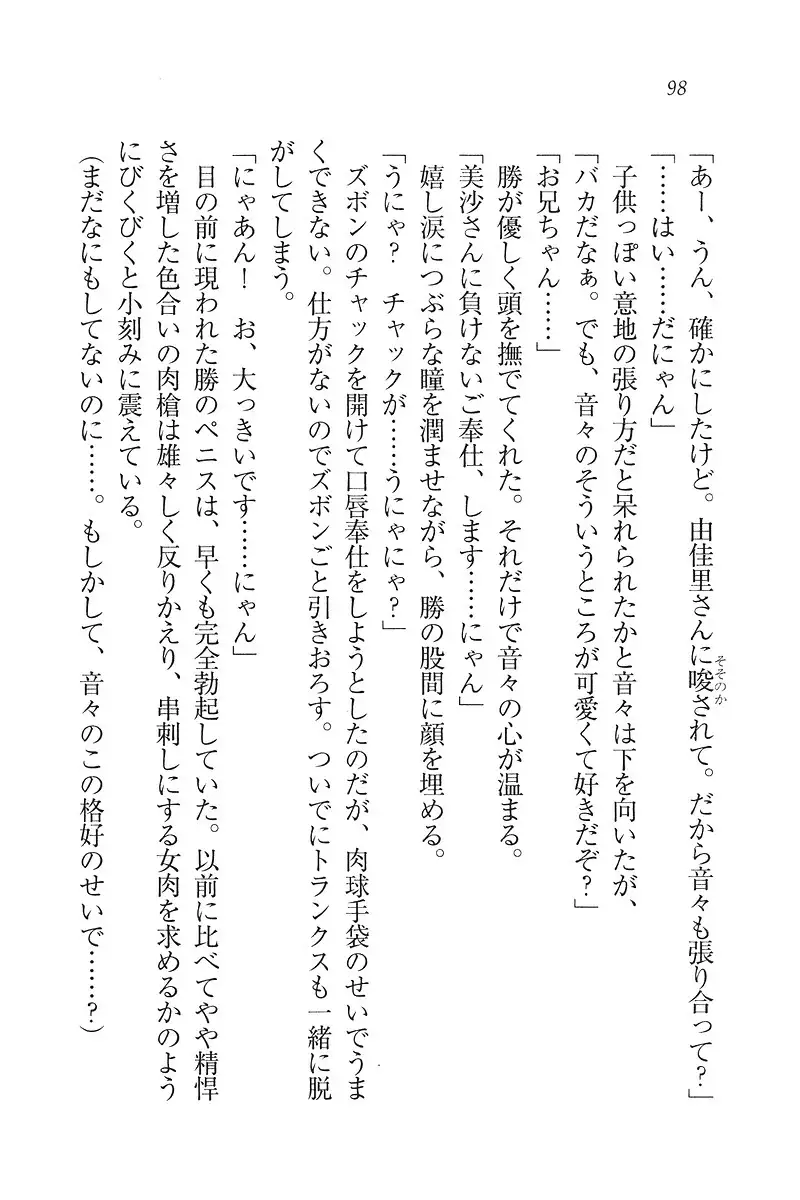 98
「あー、うん、確かにしたけど。由佳里さんに唆されて。だから音々も張り合って？」
そそのか
「……はい……だにゃん」
子供っぽい意地の張り方だと呆れられたかと音々は下を向いたが、
「バカだなぁ。でも、音々のそういうところが可愛くて好きだぞ？」
「お兄ちゃん……」
勝が優しく頭を撫でてくれた。それだけで音々の心が温まる。
「美沙さんに負けないご奉仕、します……にゃん」
嬉し涙につぶらな瞳を潤ませながら、勝の股間に顔を埋める。
「うにゃ？　チャックが……うにゃにゃ？」
ズボンのチャックを開けて口唇奉仕をしようとしたのだが、肉球手袋のせいでうま
くできない。仕方がないのでズボンごと引きおろす。ついでにトランクスも一緒に脱
がしてしまう。
「にゃあん！　お、大っきいです……にゃん」
目の前に現われた勝のペニスは、早くも完全勃起していた。以前に比べてやや精悍
さを増した色合いの肉槍は雄々しく反りかえり、串刺しにする女肉を求めるかのよう
にびくびくと小刻みに震えている。
（まだなにもしてないのに……。もしかして、音々のこの格好のせいで……？）